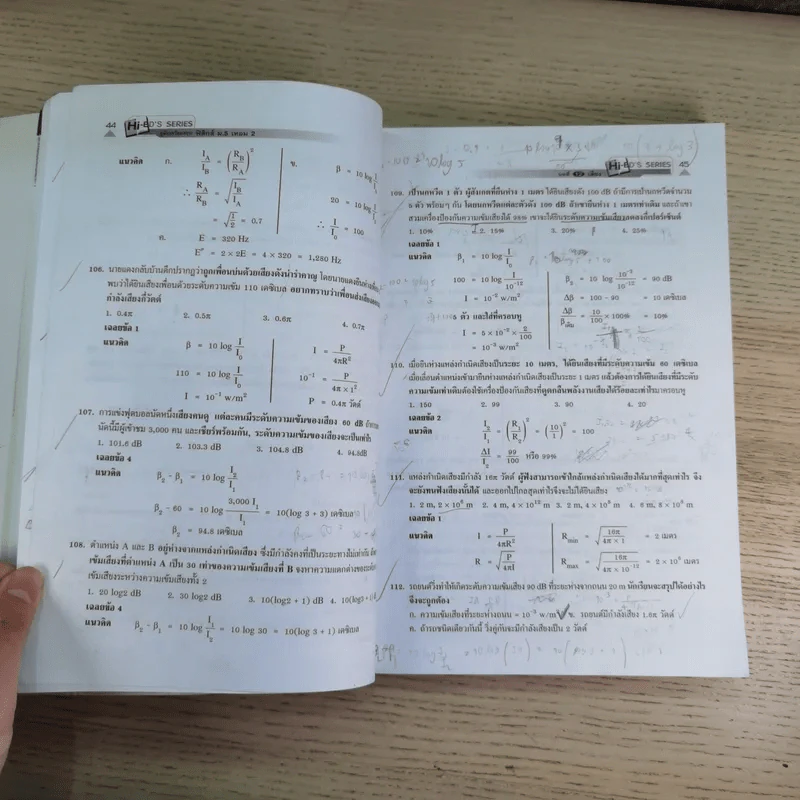 44 Hi-ED'S SERIES
ฟิสิกส์ ม.5 เทอม 2
แนวคิด ก. I_A/I_B = (R_B/R_A)²
∴ R_A/R_B = √(I_B/I_A)
= √(1/2) = 0.7
ค. E = 320 Hz
E″ = 2 × 2E = 4 × 320 = 1,280 Hz
ข. β = 10 log I/I₀
20 = 10 log I/I₀
∴ I/I₀ = 100
106. นายแดงกลับบ้านดึกปรากฏว่าถูกเพื่อนบ่นด้วยเสียงดังน่ารำคาญ โดยนายแดงยืนห่างเพื่อน
พบว่าได้ยินเสียงเพื่อนด้วยระดับความเข้ม 110 เดซิเบล อยากทราบว่าเพื่อนส่งเสียงด้วย
กำลังเสียงกี่วัตต์
1. 0.4π 2. 0.5π 3. 0.6π 4. 0.7π
เฉลยข้อ 1
แนวคิด β = 10 log I/I₀
110 = 10 log I/I₀
I = 10⁻¹ w/m²
I = P/4πR²
10⁻¹ = P/4π × 1²
P = 0.4π วัตต์
107. การแข่งฟุตบอลนัดหนึ่งเสียงคนดู แต่ละคนมีระดับความเข้มของเสียง 60 dB ถ้า
นัดนี้มีผู้เข้าชม 3,000 คน และเชียร์พร้อมกัน, ระดับความเข้มของเสียงจะเป็นเท่าไร
1. 101.6 dB 2. 103.3 dB 3. 104.8 dB 4. 94.8dB
เฉลยข้อ 4
แนวคิด β₂ - β₁ = 10 log I₂/I₁
β₂ - 60 = 10 log 3,000 I₁/I₁ = 10(log 3 + 3) เดซิเบล
β₂ = 94.8 เดซิเบล
108. ตำแหน่ง A และ B อยู่ห่างจากแหล่งกำเนิดเสียง ซึ่งมีกำลังคงที่เป็นระยะทางไม่เท่ากัน
เข้มเสียงที่ตำแหน่ง A เป็น 30 เท่าของความเข้มเสียงที่ B จงหาความแตกต่างของระดับ
เข้มเสียงระหว่างความเข้มเสียงทั้ง 2
1. 20 log2 dB 2. 30 log2 dB 3. 10(log2 + 1) dB 4. 10(log3 +1) dB
เฉลยข้อ 4
แนวคิด β₂ - β₁ = 10 log I₁/I₂ = 10 log 30 = 10(log 3 + 1) เดซิเบล
Hi-ED'S SERIES 45
109. เป่านกหวีด 1 ตัว ผู้สังเกตที่ยืนห่าง 1 เมตร ได้ยินเสียงดัง 100 dB ถ้ามีการเป่านกหวีดจำนวน
5 ตัว พร้อมๆ กัน โดยนกหวีดแต่ละตัวดัง 100 dB ถ้าเขายืนห่าง 1 เมตรเท่าเดิม และถ้าเขา
สวมเครื่องป้องกันความเข้มเสียงได้ 98% เขาจะได้ยินระดับความเข้มเสียงลดลงกี่เปอร์เซ็นต์
1. 10% 2. 15% 3. 20% 4. 25%
เฉลยข้อ 1
แนวคิด β₁ = 10 log I/I₀
100 = 10 log I/10⁻¹²
I = 10⁻² w/m²
5 ตัว และใส่ที่ครอบหู
I = 5 × 10⁻² × 2/100
= 10⁻³ w/m²
β₂ = 10 log 10⁻³/10⁻¹² = 90 dB
Δβ = 100 - 90 = 10 เดซิเบล
Δβ/β เดิม = 10/100 × 100% = 10%
110. เมื่อยืนห่างแหล่งกำเนิดเสียงเป็นระยะ 10 เมตร, ได้ยินเสียงที่มีระดับความเข้ม 60 เดซิเบล
เมื่อเลื่อนตำแหน่งเข้ามายืนห่างแหล่งกำเนิดเสียงเป็นระยะ 1 เมตร แล้วต้องการได้ยินเสียงที่มีระดับ
ความเข้มเท่าเดิมต้องใช้เครื่องป้องกันเสียงที่ดูดกลืนพลังงานเสียงได้ร้อยละเท่าไรมาครอบหู
1. 150 2. 99 3. 90 4. 20
เฉลยข้อ 2
แนวคิด I₂/I₁ = (R₁/R₂)² = (10/1)² = 100
ΔI/I₂ = 99/100 หรือ 99%
111. แหล่งกำเนิดเสียงมีกำลัง 16π วัตต์ ผู้ฟังสามารถเข้าใกล้แหล่งกำเนิดเสียงได้มากที่สุดเท่าไร จึง
จะยังทนฟังเสียงนั้นได้ และออกไปไกลสุดเท่าไรจึงจะไม่ได้ยินเสียง
1. 2 m, 2 × 10⁶ m 2. 4 m, 4 × 10¹² m 3. 2 m, 4 × 10⁶ m 4. 6 m, 8 × 10⁶ m
เฉลยข้อ 1
แนวคิด I = P/4πR²
R = √(P/4πI)
R min = √(16π/4π × 1) = 2 เมตร
R max = √(16π/4π × 10⁻¹²) = 2 × 10⁶ เมตร
112. รถยนต์วิ่งทำให้เกิดระดับความเข้มเสียง 90 dB ที่ระยะห่างจากถนน 20 m นักเรียนจะสรุปได้อย่างไร
จึงจะถูกต้อง
ก. ความเข้มเสียงที่ระยะห่างถนน = 10⁻³ w/m² ข. รถยนต์มีกำลังเสียง 1.6π วัตต์
ค. ถ้ารถชนิดเดียวกันนี้ วิ่งคู่กันจะมีกำลังเสียงเป็น 2 วัตต์